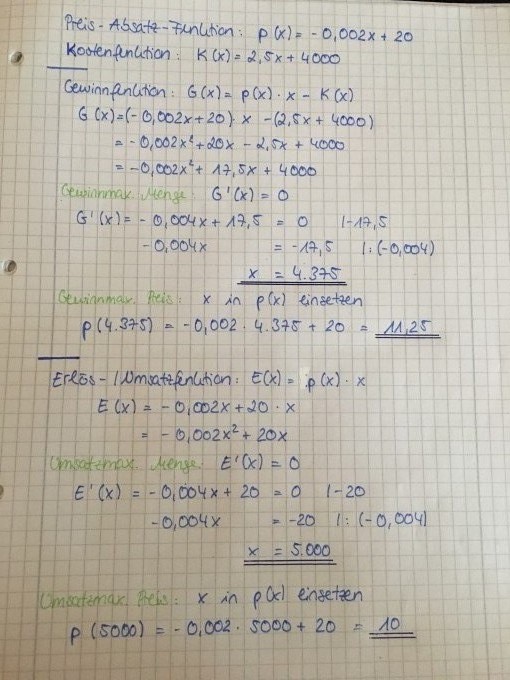 Preis-Absatz-Funktion: p(x) = -0,002x + 20
Kostenfunktion: K(x) = 2,5x + 4000
Gewinnfunktion: G(x) = p(x) · x - K(x)
G(x)=(-0,002x+20) · x -(2,5x + 4000)
= -0,002x²+20x - 2,5x + 4000
= -0,002x²+ 17,5x + 4000
Gewinnmax. Menge: G'(x) = 0
G'(x) = -0,004x + 17,5 = 0 |-17,5
-0,004x = -17,5 |:(-0,004)
x = 4.375
Gewinnmax. Preis: x in p(x) einsetzen
p(4.375) = -0,002 · 4.375 + 20 = 11,25
Erlös-/Umsatzfunktion: E(x) = p(x) · x
E(x) = -0,002x+20 · x
= -0,002x² + 20x
Umsatzmax. Menge: E'(x) = 0
E'(x) = -0,004x + 20 = 0 |-20
-0,004x = -20 |: (-0,004)
x = 5.000
Umsatzmax. Preis: x in p(x) einsetzen
p(5000) = -0,002 · 5000 + 20 = 10